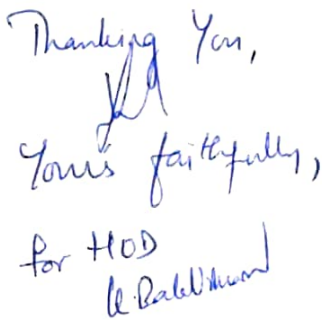 Thanking You,
Your's faithfully,
for HOD